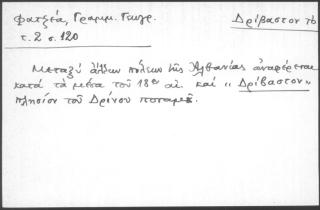 Φατζέα, Γραμμ. Γεωγρ.
Δρίβαστον τὸ
τ. 2 σ. 120
Μεταξὺ ἄλλων πόλεων τῆς Ἀλβανίας ἀναφέρεται
κατὰ τὰ μέσα τοῦ 18ου αἰ. καὶ "Δρίβαστον"
πλησίον τοῦ Δρίνου ποταμοῦ.